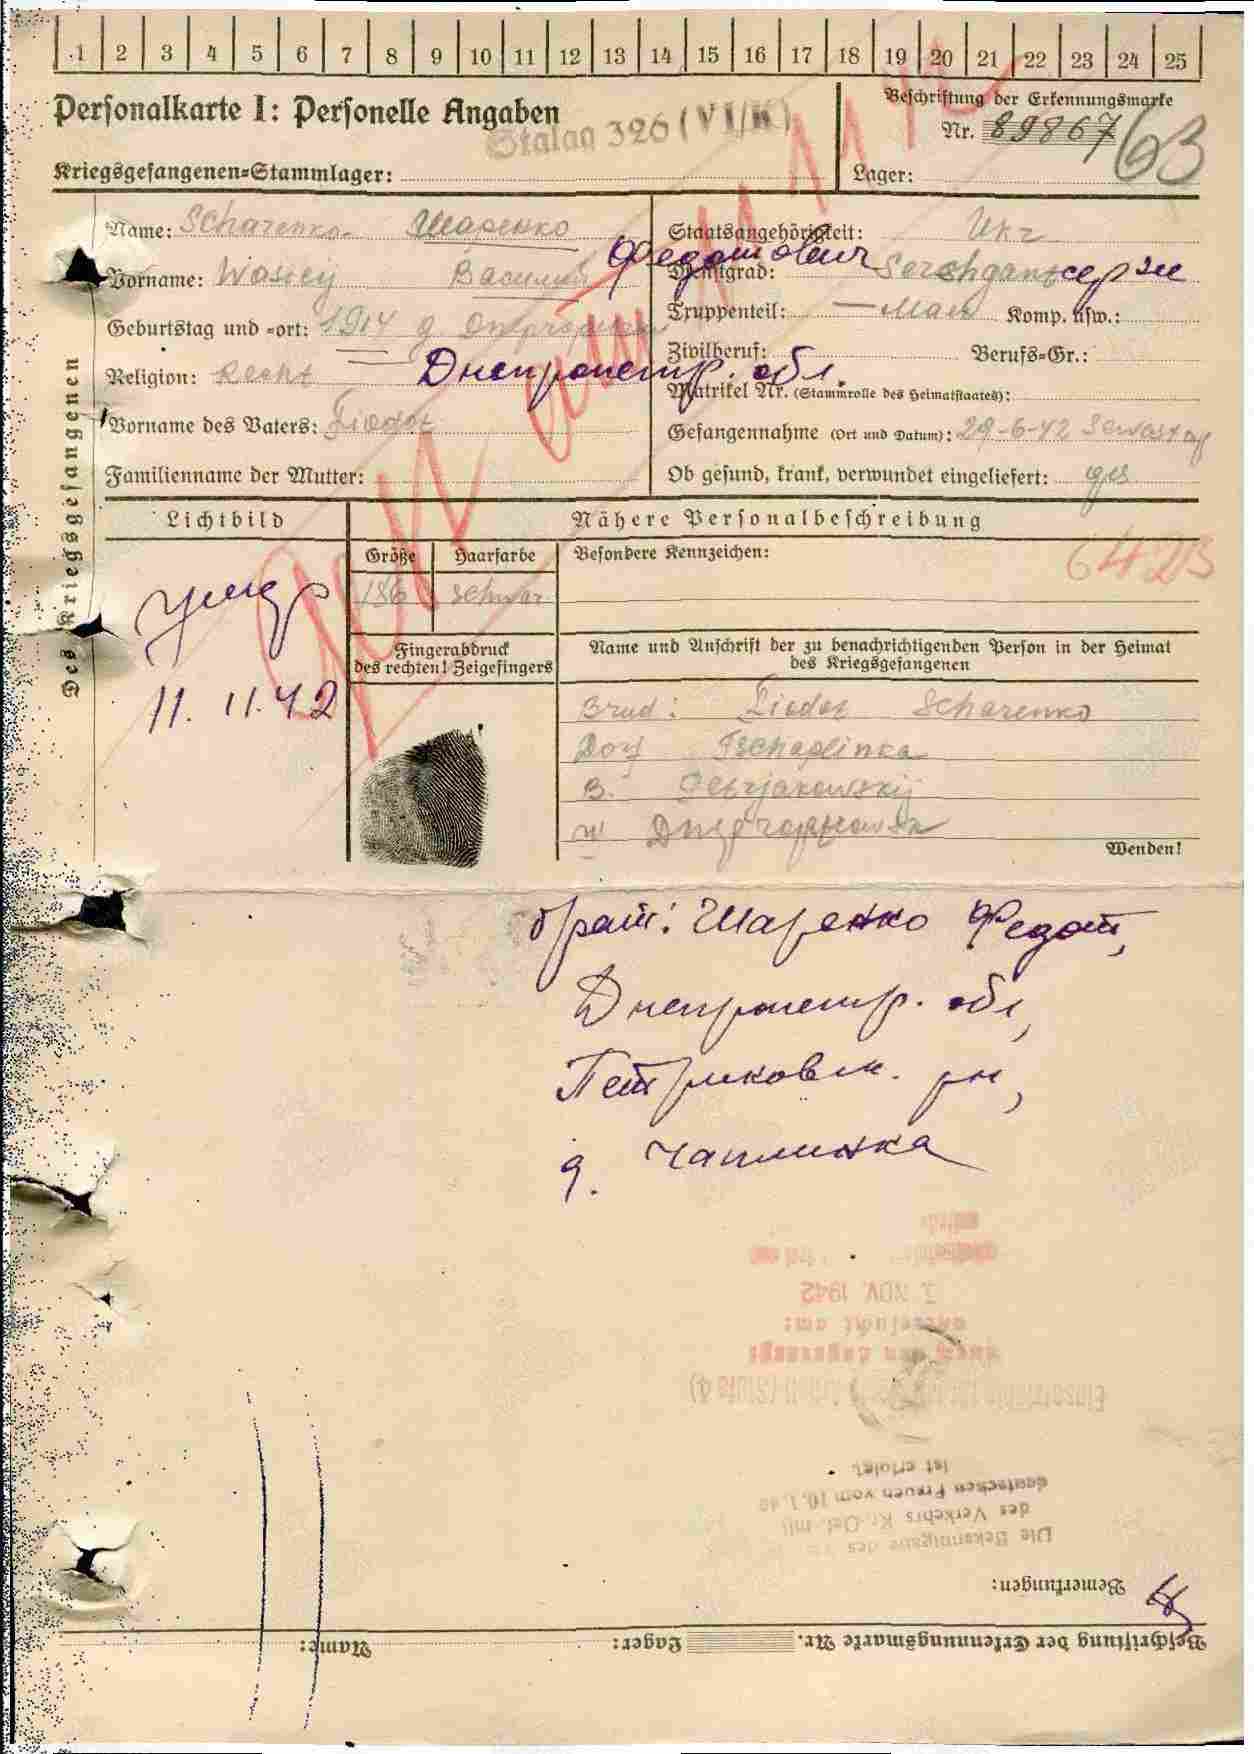 1 2 3 4 5 6 7 8 9 10 11 12 13 14 15 16 17 18 19 20 21 22 23 24 25
Personalkarte I: Personelle Angaben
Stalag 326 (VI/K)
Kriegsgefangenen=Stammlager:
Beschriftung der Erkennungsmarke
Nr. 89867
63
Lager:
Des Kriegsgefangenen
Name: Scharenko Шаренко
Vorname: Wasilij Василий Федотович
Geburtstag und =ort: 1914 g.
Днепропетр. обл.
Religion: Recht
Vorname des Vaters: Fiodot
Familienname der Mutter:
Staatsangehörigkeit: Ukr
Dienstgrad: серж
Truppenteil: Komp. usw.:
Zivilberuf: Berufs=Gr.:
Matrikel Nr. (Stammrolle des Heimatstaates):
Gefangennahme (Ort und Datum): 29-6-42
Ob gesund, krank, verwundet eingeliefert: ges
Lichtbild
Nähere Personalbeschreibung
Größe Haarfarbe Besondere Kennzeichen:
6423
186 schwar
умер
11. 11. 42
am 11 11 42
Fingerabdruck
des rechten! Zeigefingers
Name und Anschrift der zu benachrichtigenden Person in der Heimat
des Kriegsgefangenen
Brud: Fiodot Scharenko
Dorf Tschaplinka
Wenden!
брат: Шаренко Федот,
Днепропетр. обл,
Петриковск. рн,
д. Чаплинка
7. NOV. 1942
ist erfolgt.
deutschen Frauen vom 10.1.40
des Verkehrs Kr. Gef. mit
Die Bekanntgabe des
Bemerkungen:
Beschriftung der Erkennungsmarke Nr. Lager: Name: